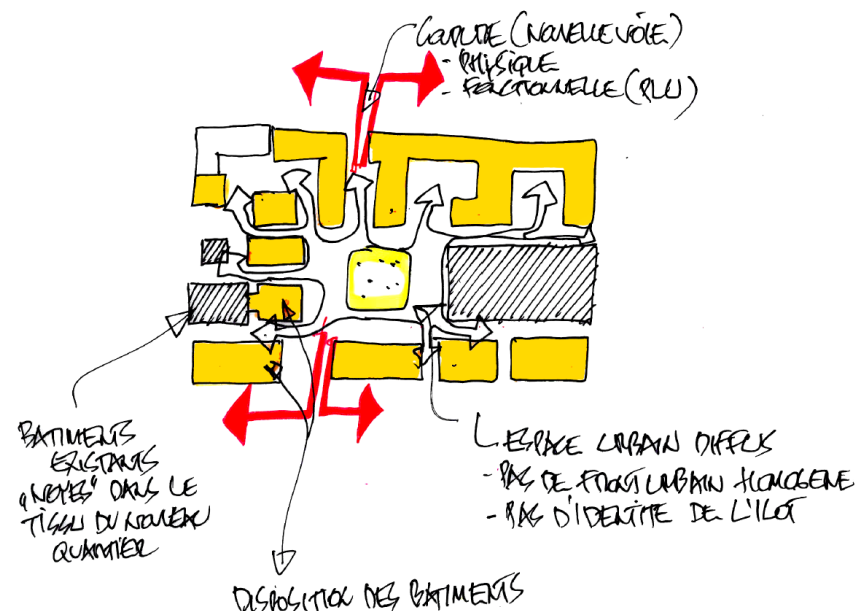 COUPURE (NOUVELLE VOIE)
- PHYSIQUE
- FONCTIONNELLE (PLU)
BATIMENTS
EXISTANTS
"NOYES" DANS LE
TISSU DU NOUVEAU
QUARTIER
ESPACE URBAIN DIFFUS
- PAS DE FRONT URBAIN HOMOGENE
- PAS D'IDENTITE DE L'ILOT
DISPOSITION DES BATIMENTS